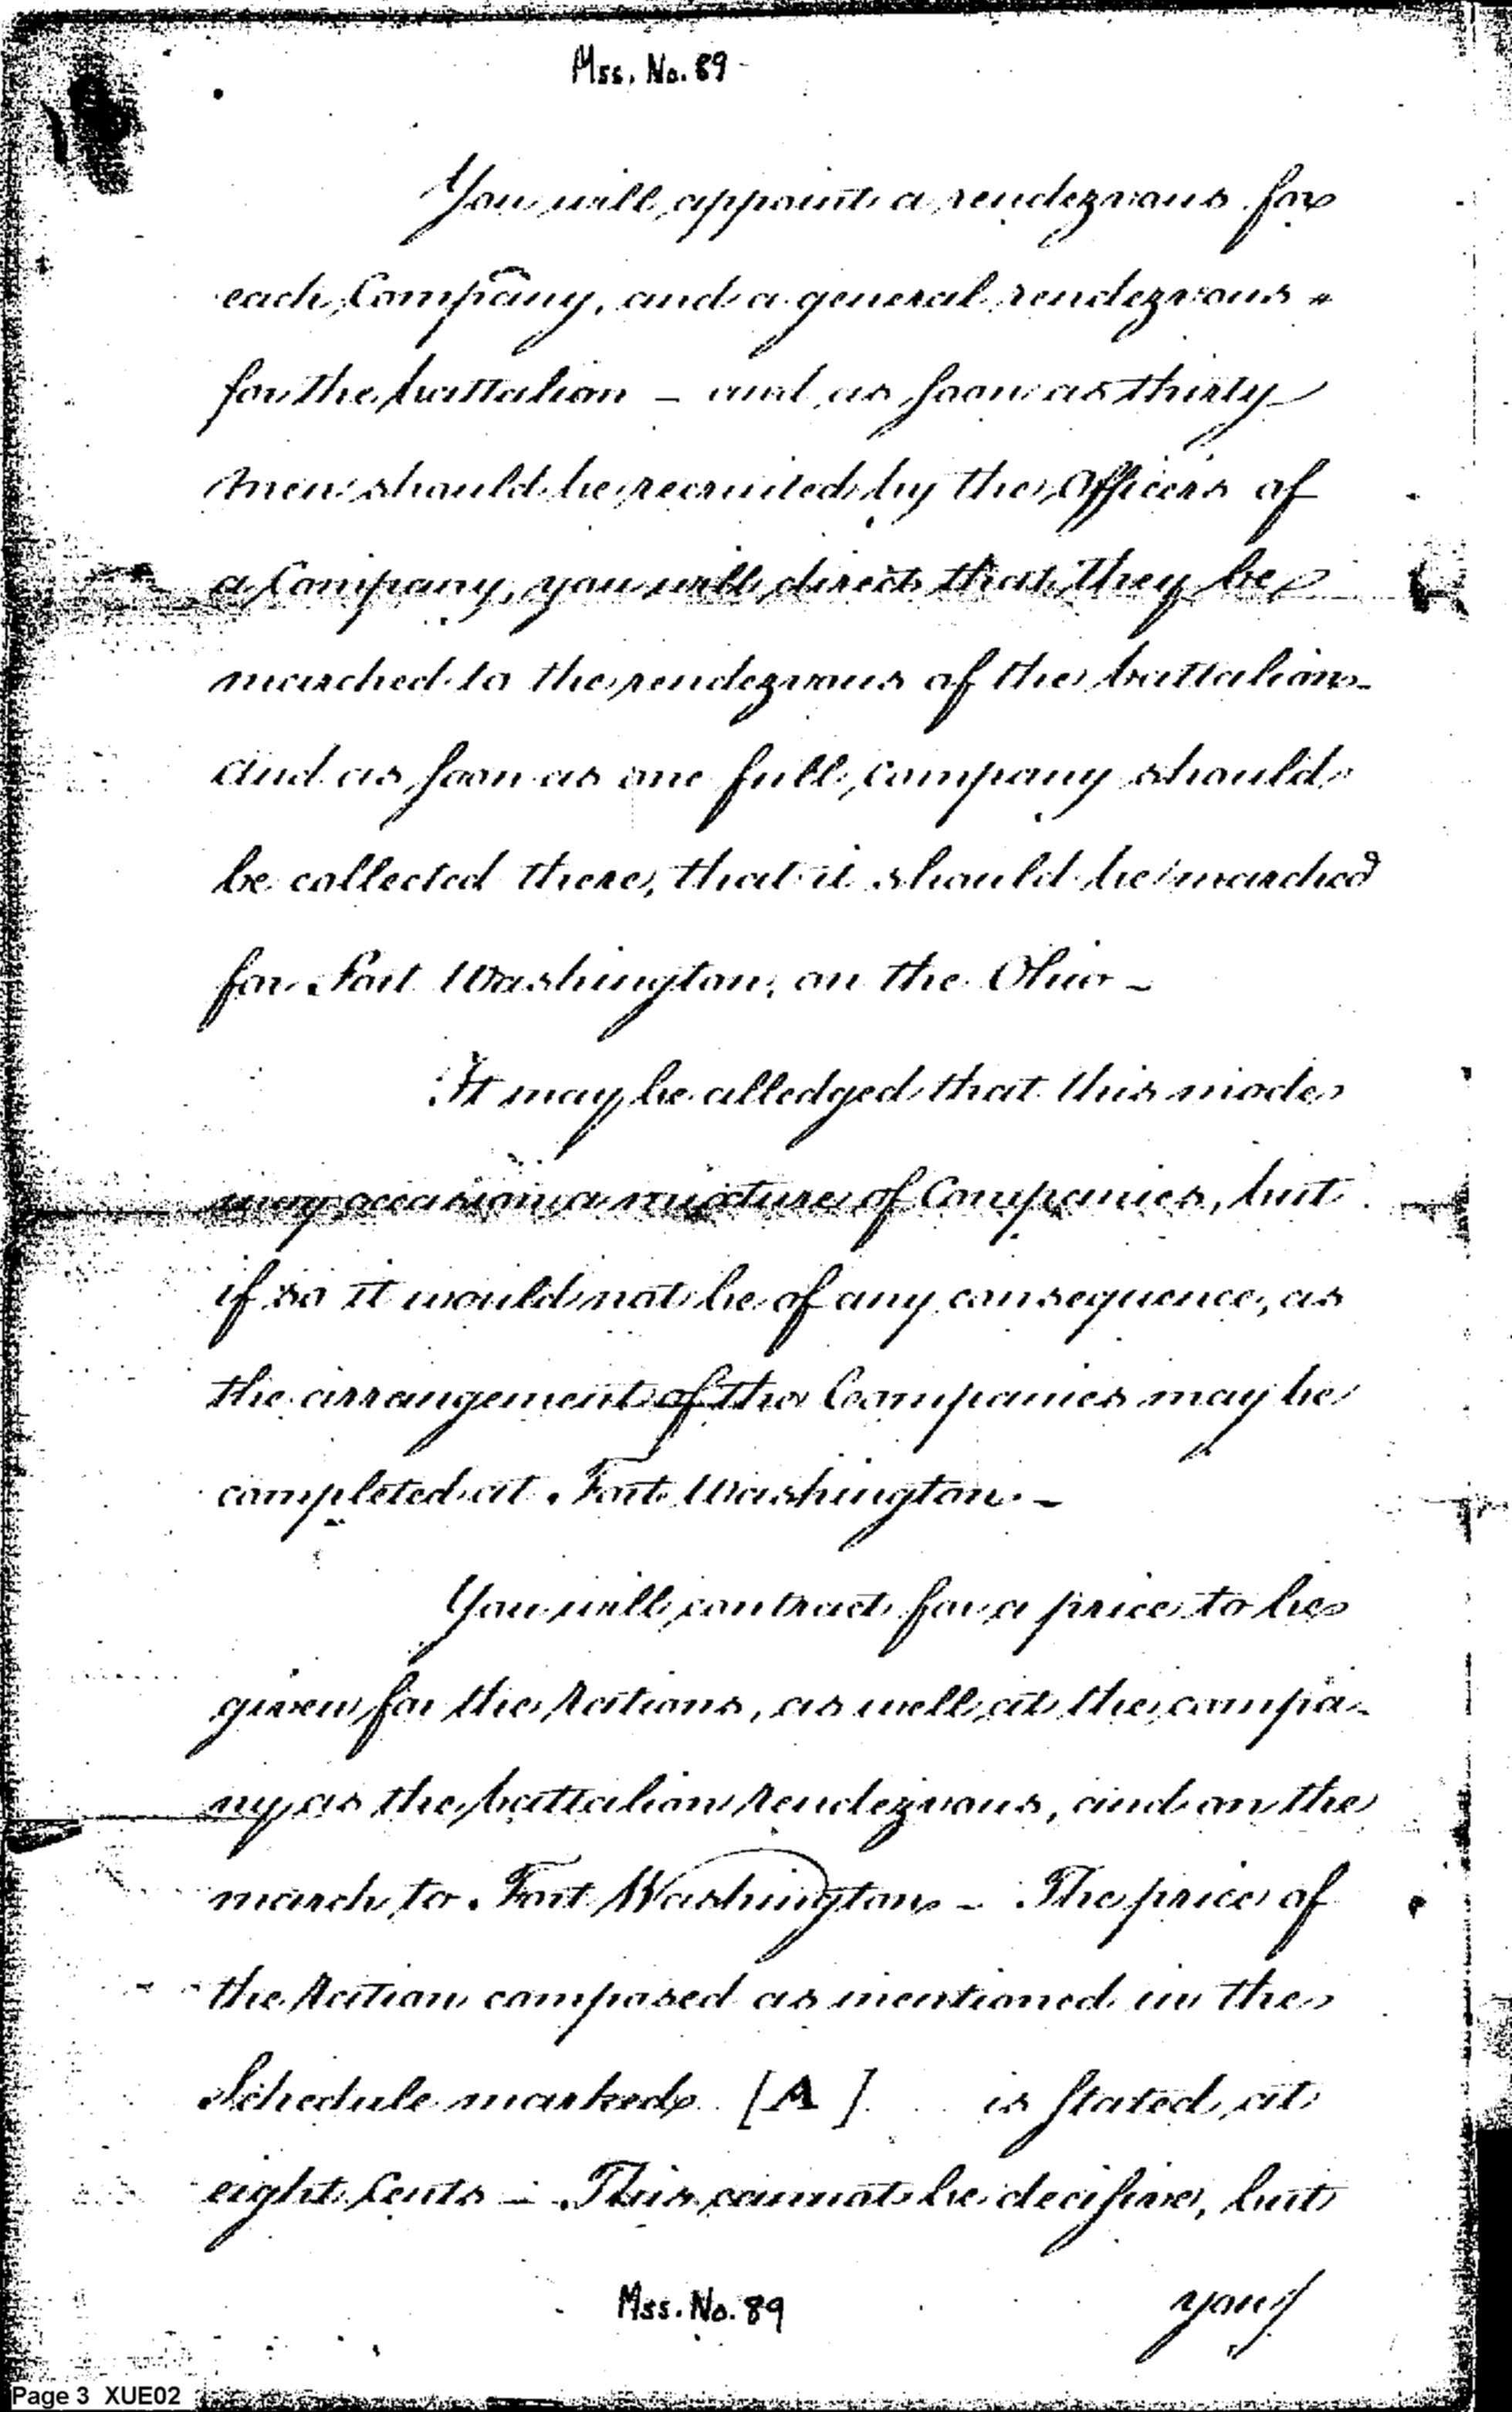 Mss. No. 89
You will appoint a rendezvous for
each Company, and a general rendezvous
for the battalion – and as soon as thirty
men should be recruited by the officers of
a Company, you will direct that they be
marched to the rendezvous of the battalion –
and as soon as one full company should
be collected there, that it should be marched
for Fort Washington, on the Ohio –
It may be alledged that this mode
may occasion a mixture of Companies, but
if so it would not be of any consequence, as
the arrangement of the Companies may be
completed at Fort Washington. –
You will contract for a price to be
given for the rations, as well at the compa-
ny as the battalion rendezvous, and on the
march to Fort Washington – The price of
the ration composed as mentioned in the
Schedule marked [A] is stated at
eight Cents – This cannot be decisive, but
you
Mss. No. 89
Page 3 XUE02